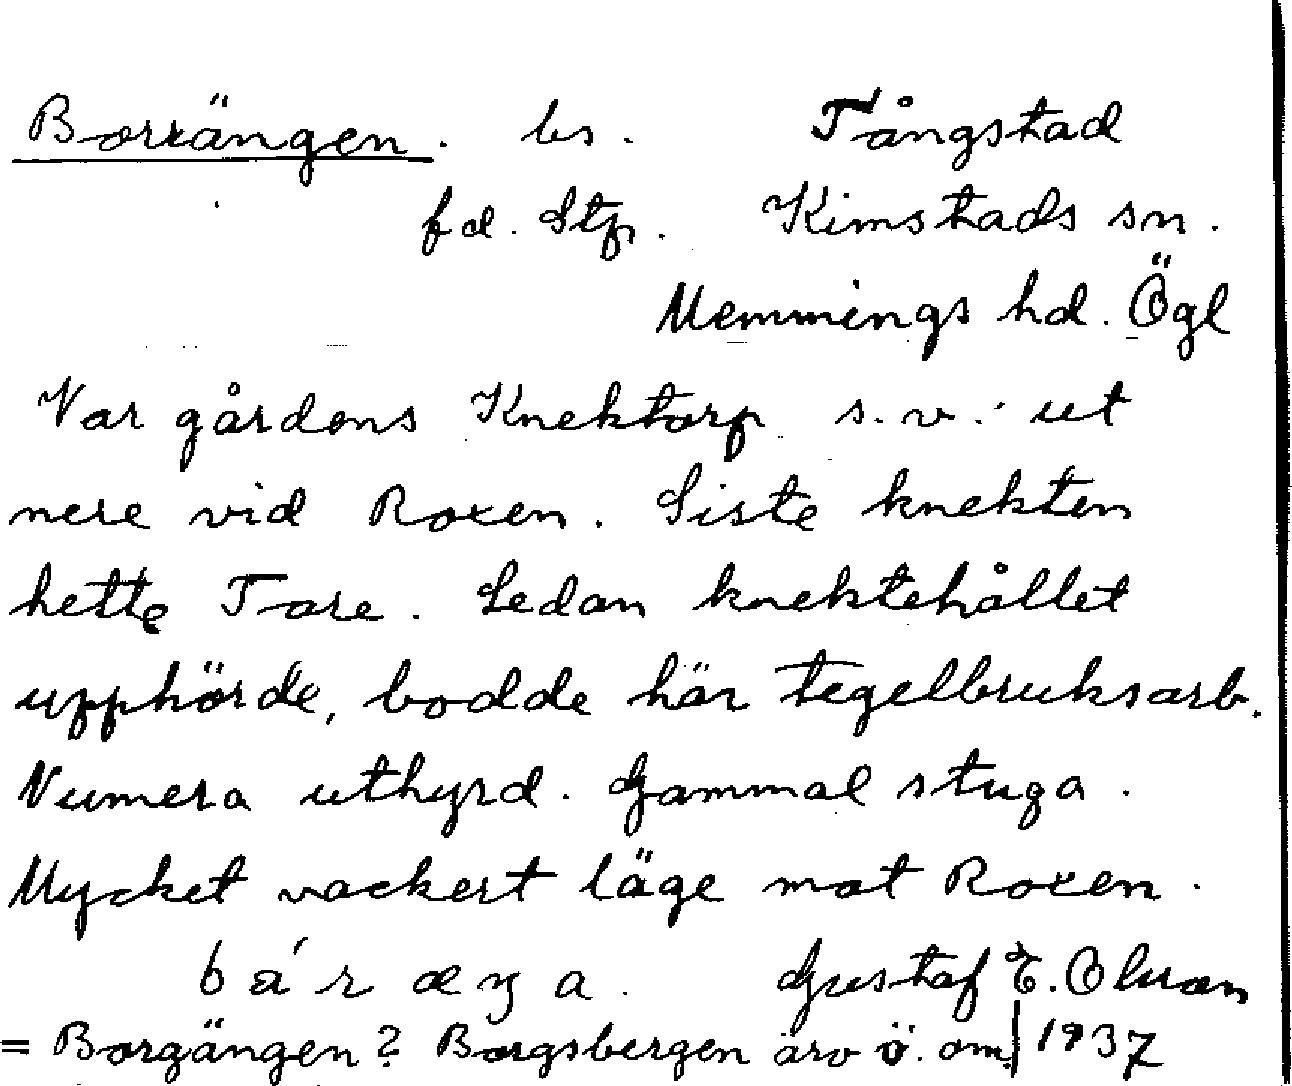 Borrängen. bs. Tångstad
fd. Stp. Kimstads sn.
Memmings hd. Ögl
Var gårdens Knektorp s.v. ut
nere vid Roxen. Siste knekten
hette Tore. Sedan knektehållet
upphörde, bodde här tegelbruksarb.
Numera uthyrd. Gammal stuga.
Mycket vackert läge mot Roxen.
Gustaf E. Olsson
= Borgängen? Borgsbergen äro ö. om 1937